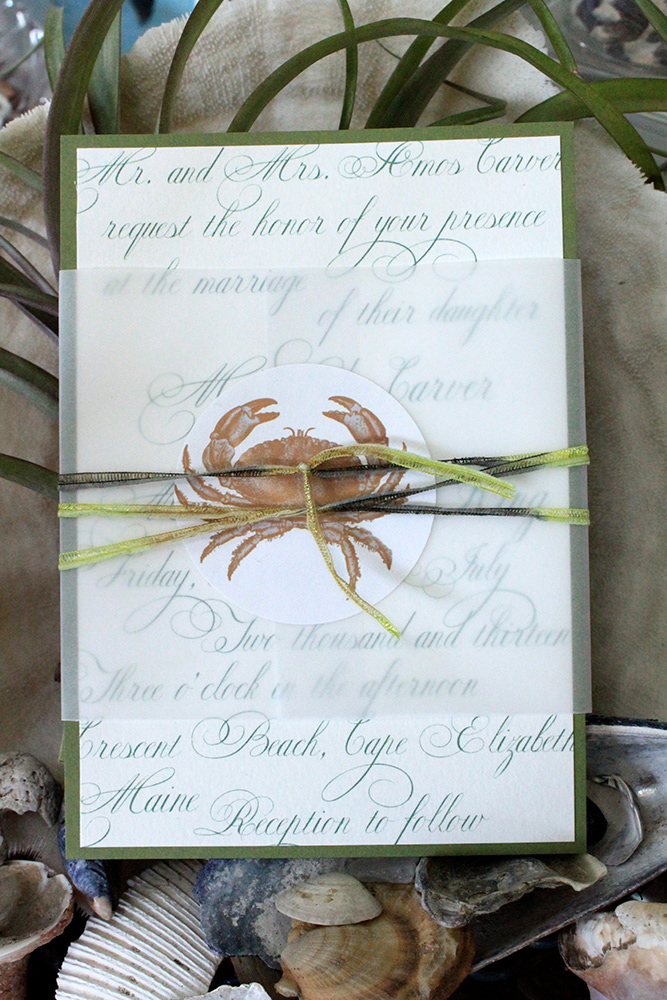 Mr. and Mrs. Amos Carver
request the honor of your presence
at the marriage
of their daughter
Carver
Friday, July
Two thousand and thirteen
Three o'clock in the afternoon
Crescent Beach, Cape Elizabeth
Maine
Reception to follow